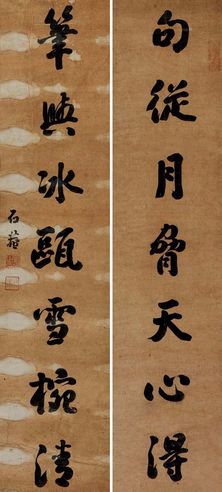 句從月脅天心得
筆與冰甌雪椀清
石菴